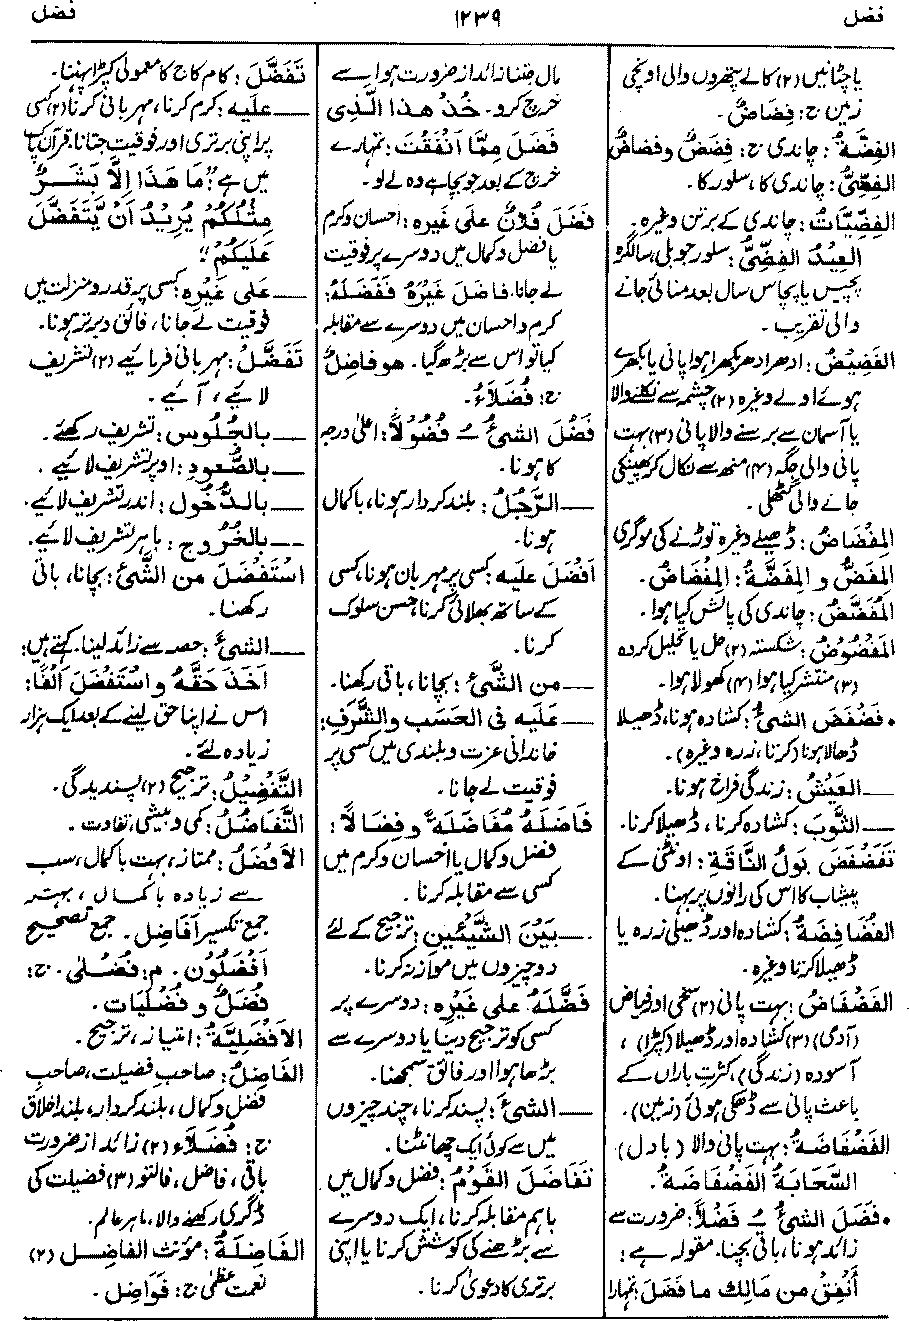 فضل
۱۲۳۹
فضل
یا چٹانیں (۲) کالے پتھروں والی اونچی
زمین ج: فِضَاضٌ.
الفِضَّةُ: چاندی ج: فِضَضٌ وفِضَاضٌ
الفِضِّيُّ: چاندی کا، سلور کا.
الفِضِّيَّاتُ: چاندی کے برتن وغیرہ.
العِيْدُ الفِضِّيُّ: سلور جوبلی، سالگرہ
پچیس یا پچاس سال بعد منائی جانے
والی تقریب.
الفَضِيْضُ: ادھر ادھر بکھرا ہوا پانی یا بکھرے
ہوئے اولے وغیرہ (۲) چشمہ سے نکلنے والا
یا آسمان سے برسنے والا پانی (۳) بہت
پانی والی جگہ (۴) منھ سے نکال کر پھینکی
جانے والی گٹھلی.
المِفْضَاضُ: ڈھیلے وغیرہ توڑنے کی موگری
المِفَضُّ و المِفَضَّةُ: المِفْضَاضُ.
المُفَضَّضُ: چاندی کی پالش کیا ہوا.
المَفْضُوْضُ: شکستہ (۲) حل یا تحلیل کردہ
(۳) منتشر کیا ہوا (۴) کھولا ہوا.
• فَضْفَضَ الشيُ: کشادہ ہونا، ڈھیلا
ڈھالا ہونا (کرنا، زرہ وغیرہ).
—العَيْشُ: زندگی فراخ ہونا.
—الثَّوبَ: کشادہ کرنا، ڈھیلا کرنا.
تَفَضْفَضَ بَولُ النَّاقَةِ: اونٹنی کے
پیشاب کا اس کی رانوں پر بہنا.
الفُضَافِضَةُ: کشادہ اور ڈھیلی زرہ یا
ڈھیلا کرتا وغیرہ.
الفَضْفَاضُ: بہت پانی (۲) سخی اور فیاض
(آدمی) (۳) کشادہ اور ڈھیلا (کپڑا)،
آسودہ (زندگی)، کثرت باراں کے
باعث پانی سے ڈھکی ہوئی (زمین).
الفَضْفَاضَةُ: بہت پانی والا (بادل)
السَّحَابَةُ الفَضْفَاضَةُ.
• فَضَلَ الشيُ ـُ فَضْلاً: ضرورت سے
زائد ہونا، باقی بچنا. مقولہ ہے:
أَنْفِقْ من مَالِكَ ما فَضَلَ: تمہارا
مال جتنا زائد از ضرورت ہو اسے
خرچ کرو. خُذْ هذا الَّذِي
فَضَلَ مِمَّا أَنْفَقْتَ: تمہارے
خرچ کے بعد جو بچا ہے وہ لے لو.
فَضَلَ فُلَانٌ على غَيرِه: احسان وکرم
یا فضل وکمال میں دوسرے پر فوقیت
لے جانا. فَاضَلَ غَيْرَهُ فَفَضَلَهُ:
کرم واحسان میں دوسرے سے مقابلہ
کیا تو اس سے بڑھ گیا. هو فَاضِلٌ
ج: فُضَلَاءُ.
فَضُلَ الشيُ ـُ فُضُولاً: اعلی درجہ
کا ہونا.
—الرَّجُلُ: بلند کردار ہونا، باکمال
ہونا.
أَفْضَلَ عليه: کسی پر مہربان ہونا، کسی
کے ساتھ بھلائی کرنا، حسن سلوک
کرنا.
—من الشَّيْ: بچانا، باقی رکھنا.
—عَلَيه في الحَسَبِ والشَّرَفِ:
خاندانی عزت وبلندی میں کسی پر
فوقیت لے جانا.
فَاضَلَهُ مُفَاضَلَةً وفِضَالاً:
فضل وکمال یا احسان وکرم میں
کسی سے مقابلہ کرنا.
—بَيْنَ الشَّيْئَينِ: ترجیح کے لئے
دو چیزوں میں موازنہ کرنا.
فَضَّلَهُ على غَيْرِه: دوسرے پر
کسی کو ترجیح دینا یا دوسرے سے
بڑھا ہوا اور فائق سمجھنا.
—الشيَ: پسند کرنا، چند چیزوں
میں سے کوئی ایک چھانٹنا.
تَفَاضَلَ القَوْمُ: فضل وکمال میں
باہم مقابلہ کرنا، ایک دوسرے
سے بڑھنے کی کوشش کرنا یا اپنی
برتری کا دعویٰ کرنا.
تَفَضَّلَ: کام کاج کا معمولی کپڑا پہننا.
—عليه: کرم کرنا، مہربانی کرنا (۲) کسی
پر اپنی برتری اور فوقیت جتانا، قرآن پاک
میں ہے: "مَا هَذَا إِلَّا بَشَرٌ
مِثْلُكُمْ يُرِيْدُ أَنْ يَّتَفَضَّلَ
عَلَيْكُمْ"
—على غَيْرِه: کسی پر قدر ومنزلت میں
فوقیت لے جانا، فائق وبرتر ہونا.
تَفَضَّلْ: مہربانی فرمائیے (۲) تشریف
لائیے، آئیے.
—بالجُلُوسِ: تشریف رکھئے.
—بالصُّعودِ: اوپر تشریف لائیے.
—بالدُّخُول: اندر تشریف لائیے.
—بالخُرُوجِ: باہر تشریف لائیے.
اسْتَفْضَلَ من الشَّيْ: بچانا، باقی
رکھنا.
—الشيَ: حصہ سے زائد لینا. کہتے ہیں:
أَخَذَ حَقَّهُ و اسْتَفْضَلَ أَلْفًا:
اس نے اپنا حق لینے کے بعد ایک ہزار
زیادہ لئے.
التَّفْضِيْلُ: ترجیح (۲) پسندیدگی.
التَّفَاضُلُ: کمی وبیشی، تفاوت.
الأَفْضَلُ: ممتاز، بہت باکمال، سب
سے زیادہ باکمال، بہتر
جمع تکسیر أَفَاضِلُ. جمع تصحیح
أَفْضَلُونَ. م: فُضْلَى. ج:
فُضَلٌ و فُضْلَيَات.
الأَفْضَلِيَّةُ: امتیاز، ترجیح.
الفَاضِلُ: صاحبِ فضیلت، صاحبِ
فضل وکمال، بلند کردار، بلند اخلاق
ج: فُضَلَاء (۲) زائد از ضرورت
باقی، فاضل، فالتو (۳) فضیلت کی
ڈگری رکھنے والا، ماہر عالم.
الفَاضِلَةُ: مؤنث الفاضل (۲)
نعمتِ عظمیٰ ج: فَوَاضِل.